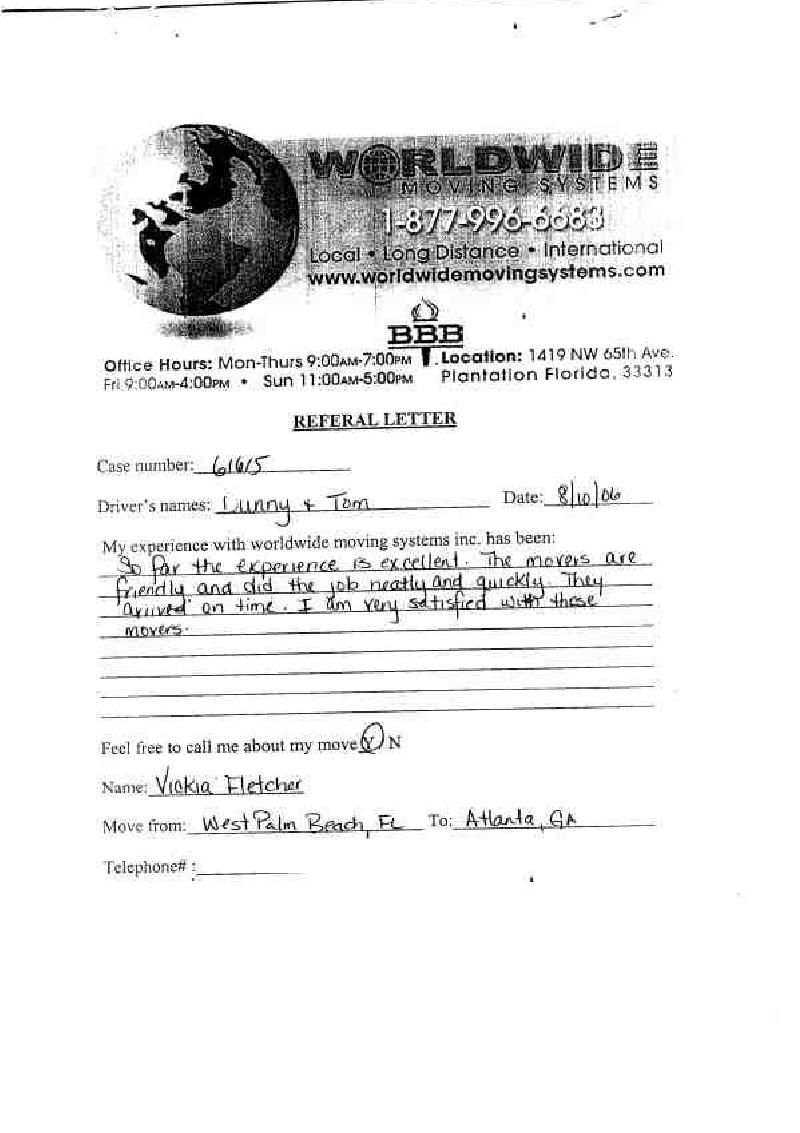 WORLDWIDE
MOVING SYSTEMS
1-877-996-6683
Local • Long Distance • International
www.worldwidemovingsystems.com
BBB
Office Hours: Mon-Thurs 9:00AM-7:00PM
Fri 9:00AM-4:00PM • Sun 11:00AM-5:00PM
Location: 1419 NW 65th Ave.
Plantation Florida, 33313
REFERAL LETTER
Case number: 61615
Driver's names: & Tom Date: 8/10/06
My experience with worldwide moving systems inc. has been:
So far the experience is excellent. The movers are
friendly and did the job neatly and quickly. They
arrived on time. I am very satisfied with these
movers.
Feel free to call me about my move Y N
Name: Vickia Fletcher
Move from: West Palm Beach, FL To: Atlanta, GA
Telephone# :